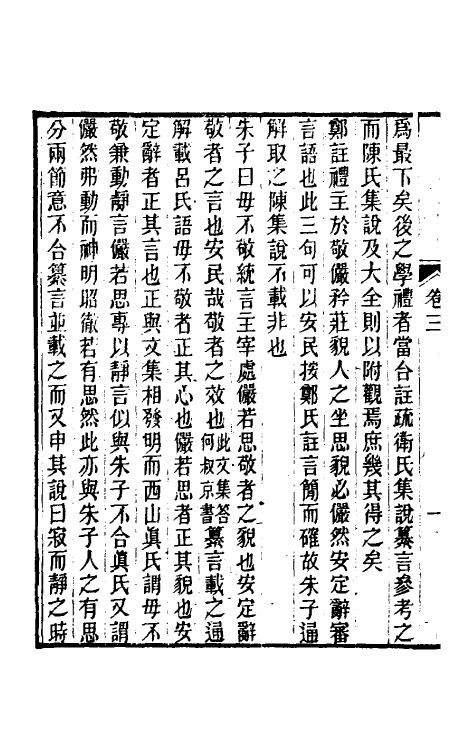 卷三
一
為最下矣後之學禮者當合註疏衛氏集說纂言參考之
而陳氏集說及大全則以附觀焉庶幾其得之矣
鄭註禮主於敬儼矜莊貌人之坐思貌必儼然安定辭審
言語也此三句可以安民按鄭氏註言簡而確故朱子通
解取之陳集說不載非也
朱子曰毋不敬統言主宰處儼若思敬者之貌也安定辭
敬者之言也安民哉敬者之效也此文集答何叔京書纂言載之通
解載呂氏語毋不敬者正其心也儼若思者正其貌也安
定辭者正其言也正與文集相發明而西山眞氏謂毋不
敬兼動靜言儼若思專以靜言似與朱子不合眞氏又謂
儼然弗動而神明昭徹若有思然此亦與朱子人之有思
分兩節意不合纂言並載之而又申其說曰寂而靜之時